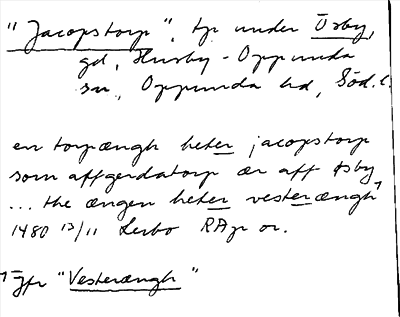 "Jacopstorp", tp under Österby,
gd, Husby-Oppunda
sn, Oppunda hd, Söd. l.
en torpængh heter jacopstorp
som affgerdatorp ær aff Øsby
... the ængen heter vesterængh¹
1480 13/11 Lerbo RAp or.
¹ Jfr "Vesterængh"